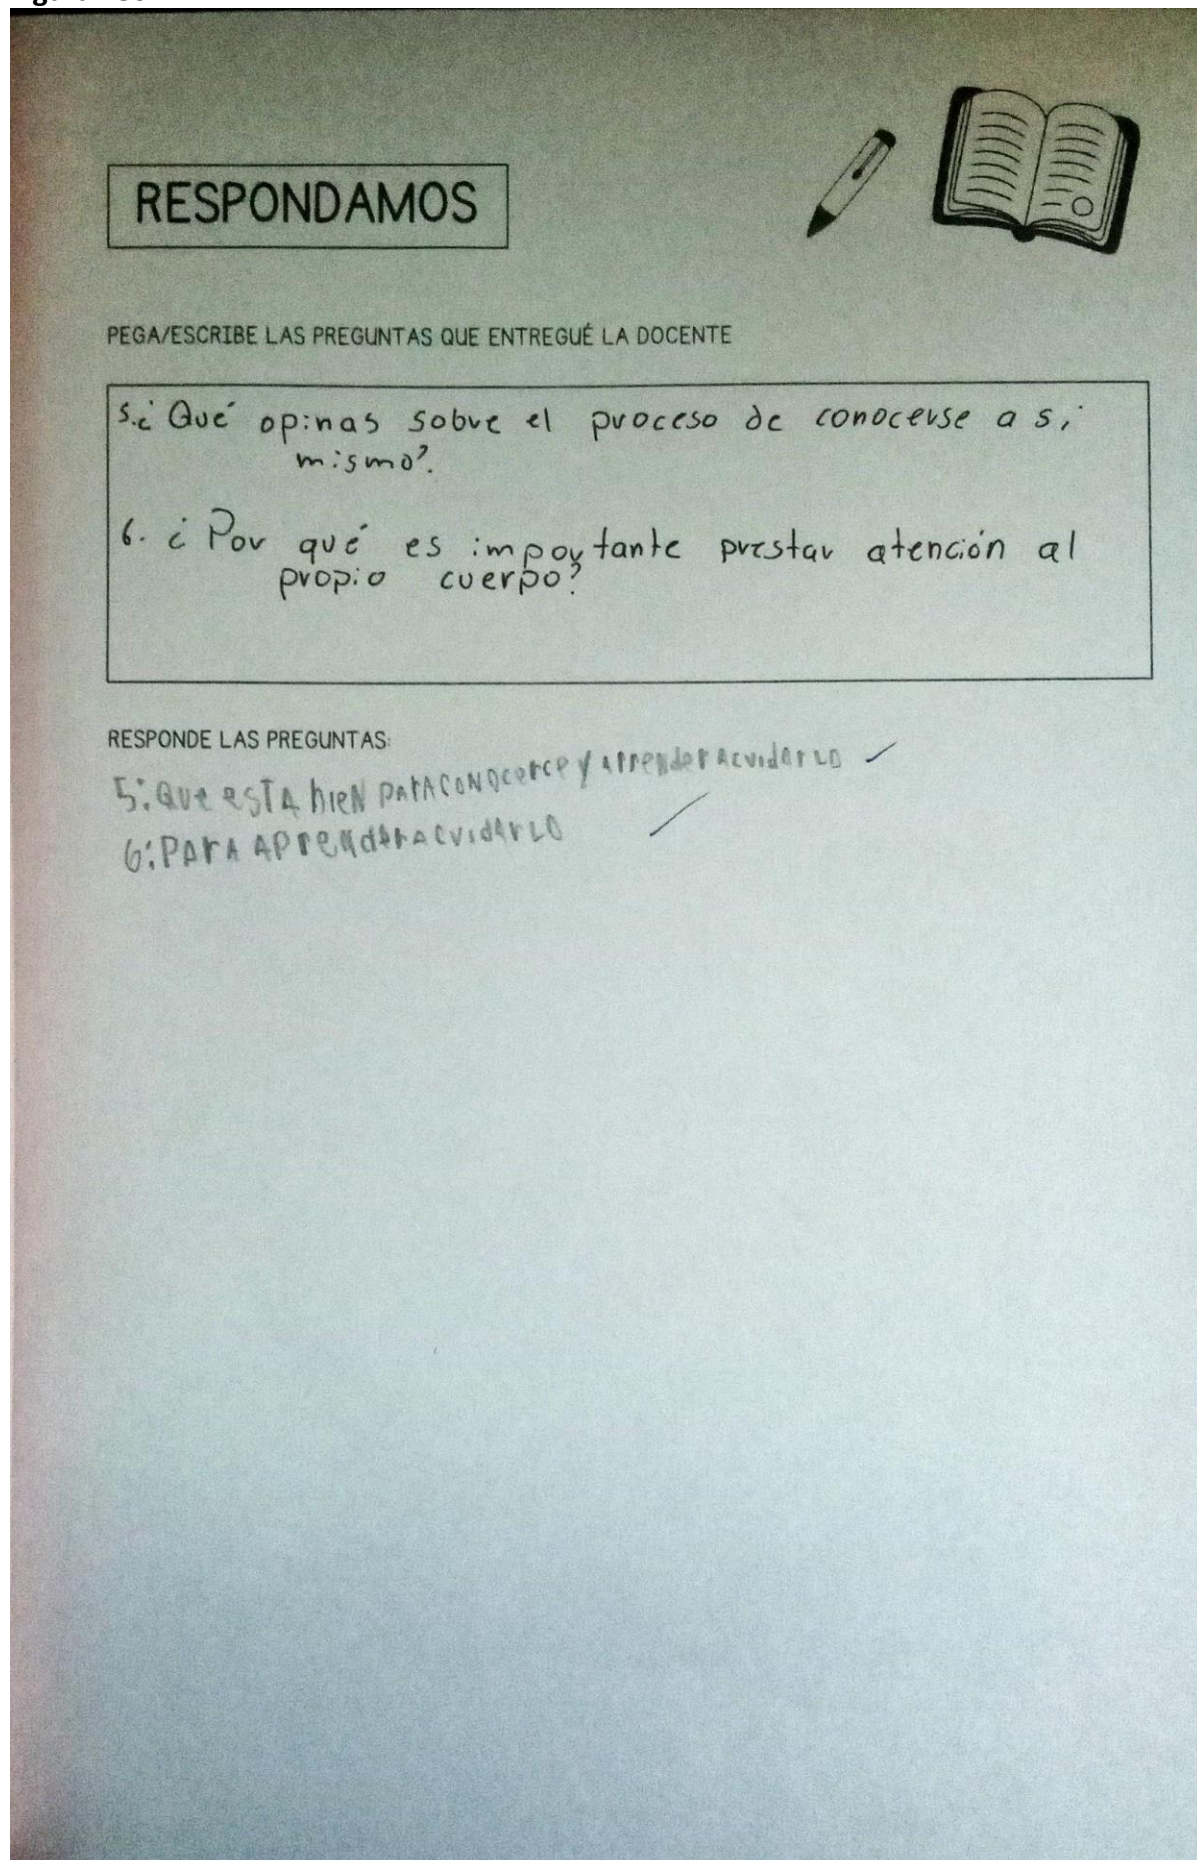 RESPONDAMOS
PEGA/ESCRIBE LAS PREGUNTAS QUE ENTREGUÉ LA DOCENTE
5.¿ Qué opinas sobre el proceso de conocerse a sí
mismo?.
6. ¿ Por qué es importante prestar atención al
propio cuerpo?
RESPONDE LAS PREGUNTAS:
5: QUE ESTA bien PARA CONOCERCE y APRENder A cuidarLO
6: PARA APRENdER A cuidarLO